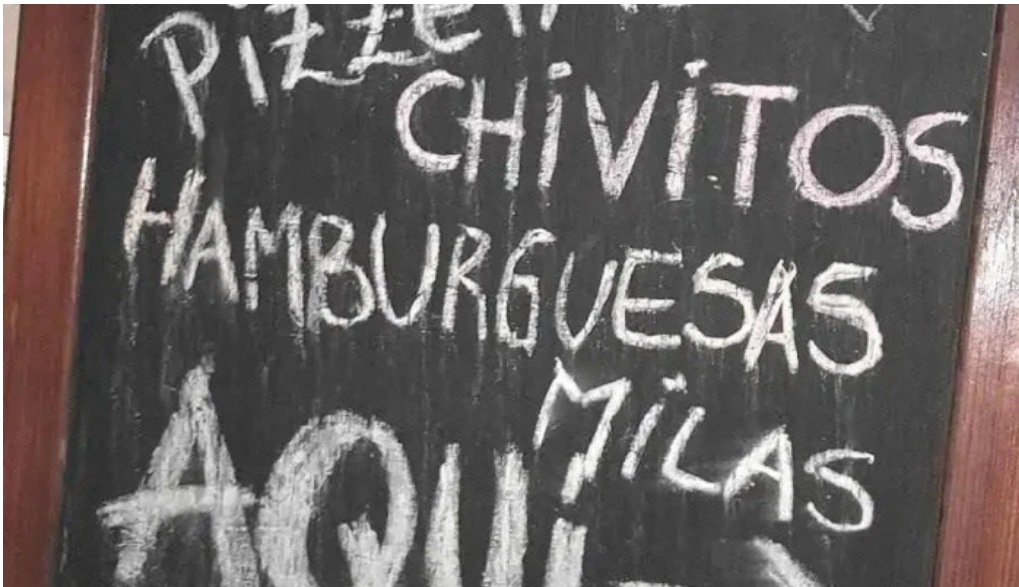 CHiViTOS
HAMBURGUESAS
MiLAS
AQUi